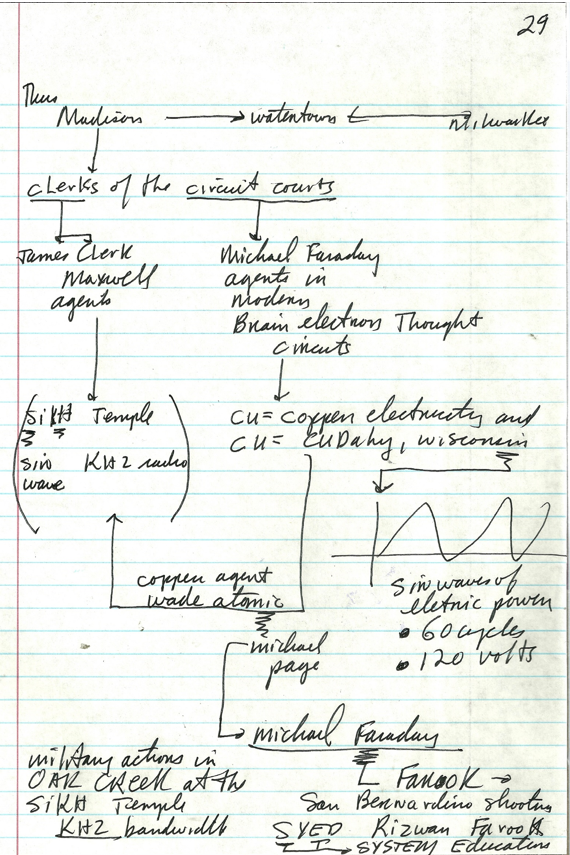 29
Thus
Madison → watertown ← Milwaukee
clerks of the circuit courts
James Clerk
Maxwell
agents
Michael Faraday
agents in
modern
Brain electron Thought
circuits
SiKH Temple
sin KHZ radio
wave
CU = copper electricity and
CU = CUDahy, wisconsin
copper agent
wade atomic
sin waves of
eletric power
• 60 cycles
• 120 volts
michael
page
michael Faraday
military actions in
OAK CREEK at the
SiKH Temple
KHZ bandwidth
Farook →
San Bernardino shooting
SYED Rizwan Farook
→ SYSTEM Education